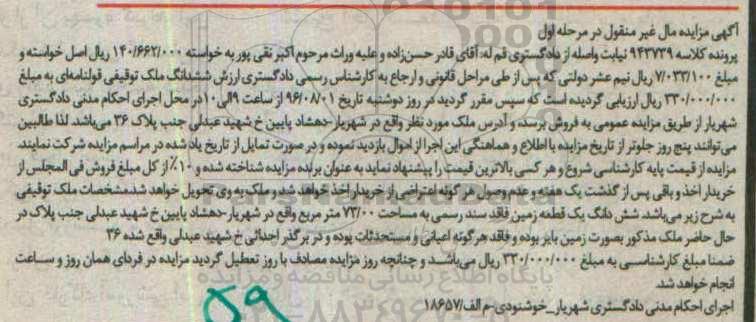 آگهی مزایده مال غیر منقول در مرحله اول
پرونده کلاسه ۹۴۳۷۳۹ نیابت واصله از دادگستری قم له: آقای قادر حسن‌زاده و علیه وراث مرحوم اکبر نقی پور به خواسته ۱۴۰/۶۶۲/۰۰۰ ریال اصل خواسته و
مبلغ ۷/۰۳۳/۱۰۰ ریال نیم عشر دولتی که پس از طی مراحل قانونی و ارجاع به کارشناس رسمی دادگستری ارزش ششدانگ ملک توقیفی قولنامه‌ای به مبلغ
۳۳۰/۰۰۰/۰۰۰ ریال ارزیابی گردیده است که سپس مقرر گردید در روز دوشنبه تاریخ ۹۶/۰۸/۰۱ از ساعت ۹ الی ۱۰ در محل اجرای احکام مدنی دادگستری
شهریار از طریق مزایده عمومی به فروش برسد، و آدرس ملک مورد نظر واقع در شهریار-دهشاد پایین خ شهید عبدلی جنب پلاک ۳۶ می‌باشد. لذا طالبین
می‌توانند پنج روز جلوتر از تاریخ مزایده با اطلاع و هماهنگی این اجرا از اموال بازدید نموده و در صورت تمایل از تاریخ یاد شده در مراسم مزایده شرکت نمایند.
مزایده از قیمت پایه کارشناسی شروع و هر کسی بالاترین قیمت را پیشنهاد نماید به عنوان برنده مزایده شناخته شده و ۱۰٪ از کل مبلغ فروش فی المجلس از
خریدار اخذ و باقی پس از گذشت یک هفته و عدم وصول هر گونه اعتراضی از خریدار اخذ خواهد شد و ملک به وی تحویل خواهد شد مشخصات ملک توقیفی
به شرح زیر می‌باشد. شش دانگ یک قطعه زمین فاقد سند رسمی به مساحت ۷۳/۰۰ متر مربع واقع در شهریار-دهشاد پایین خ شهید عبدلی جنب پلاک در
حال حاضر ملک مذکور بصورت زمین بایر بوده و فاقد هرگونه اعیانی و مستحدثات بوده و در بر گذر احداثی خ شهید عبدلی واقع شده ۳۶
ضمنا مبلغ کارشناسی به مبلغ ۳۳۰/۰۰۰/۰۰۰ ریال می‌باشد و چنانچه روز مزایده مصادف با روز تعطیل گردید مزایده در فردای همان روز و ساعت
انجام خواهد شد.
اجرای احکام مدنی دادگستری شهریار_خوشنودی-م الف/۱۸۶۵۷
پایگاه اطلاع رسانی مناقصه و مزایده
۵۹